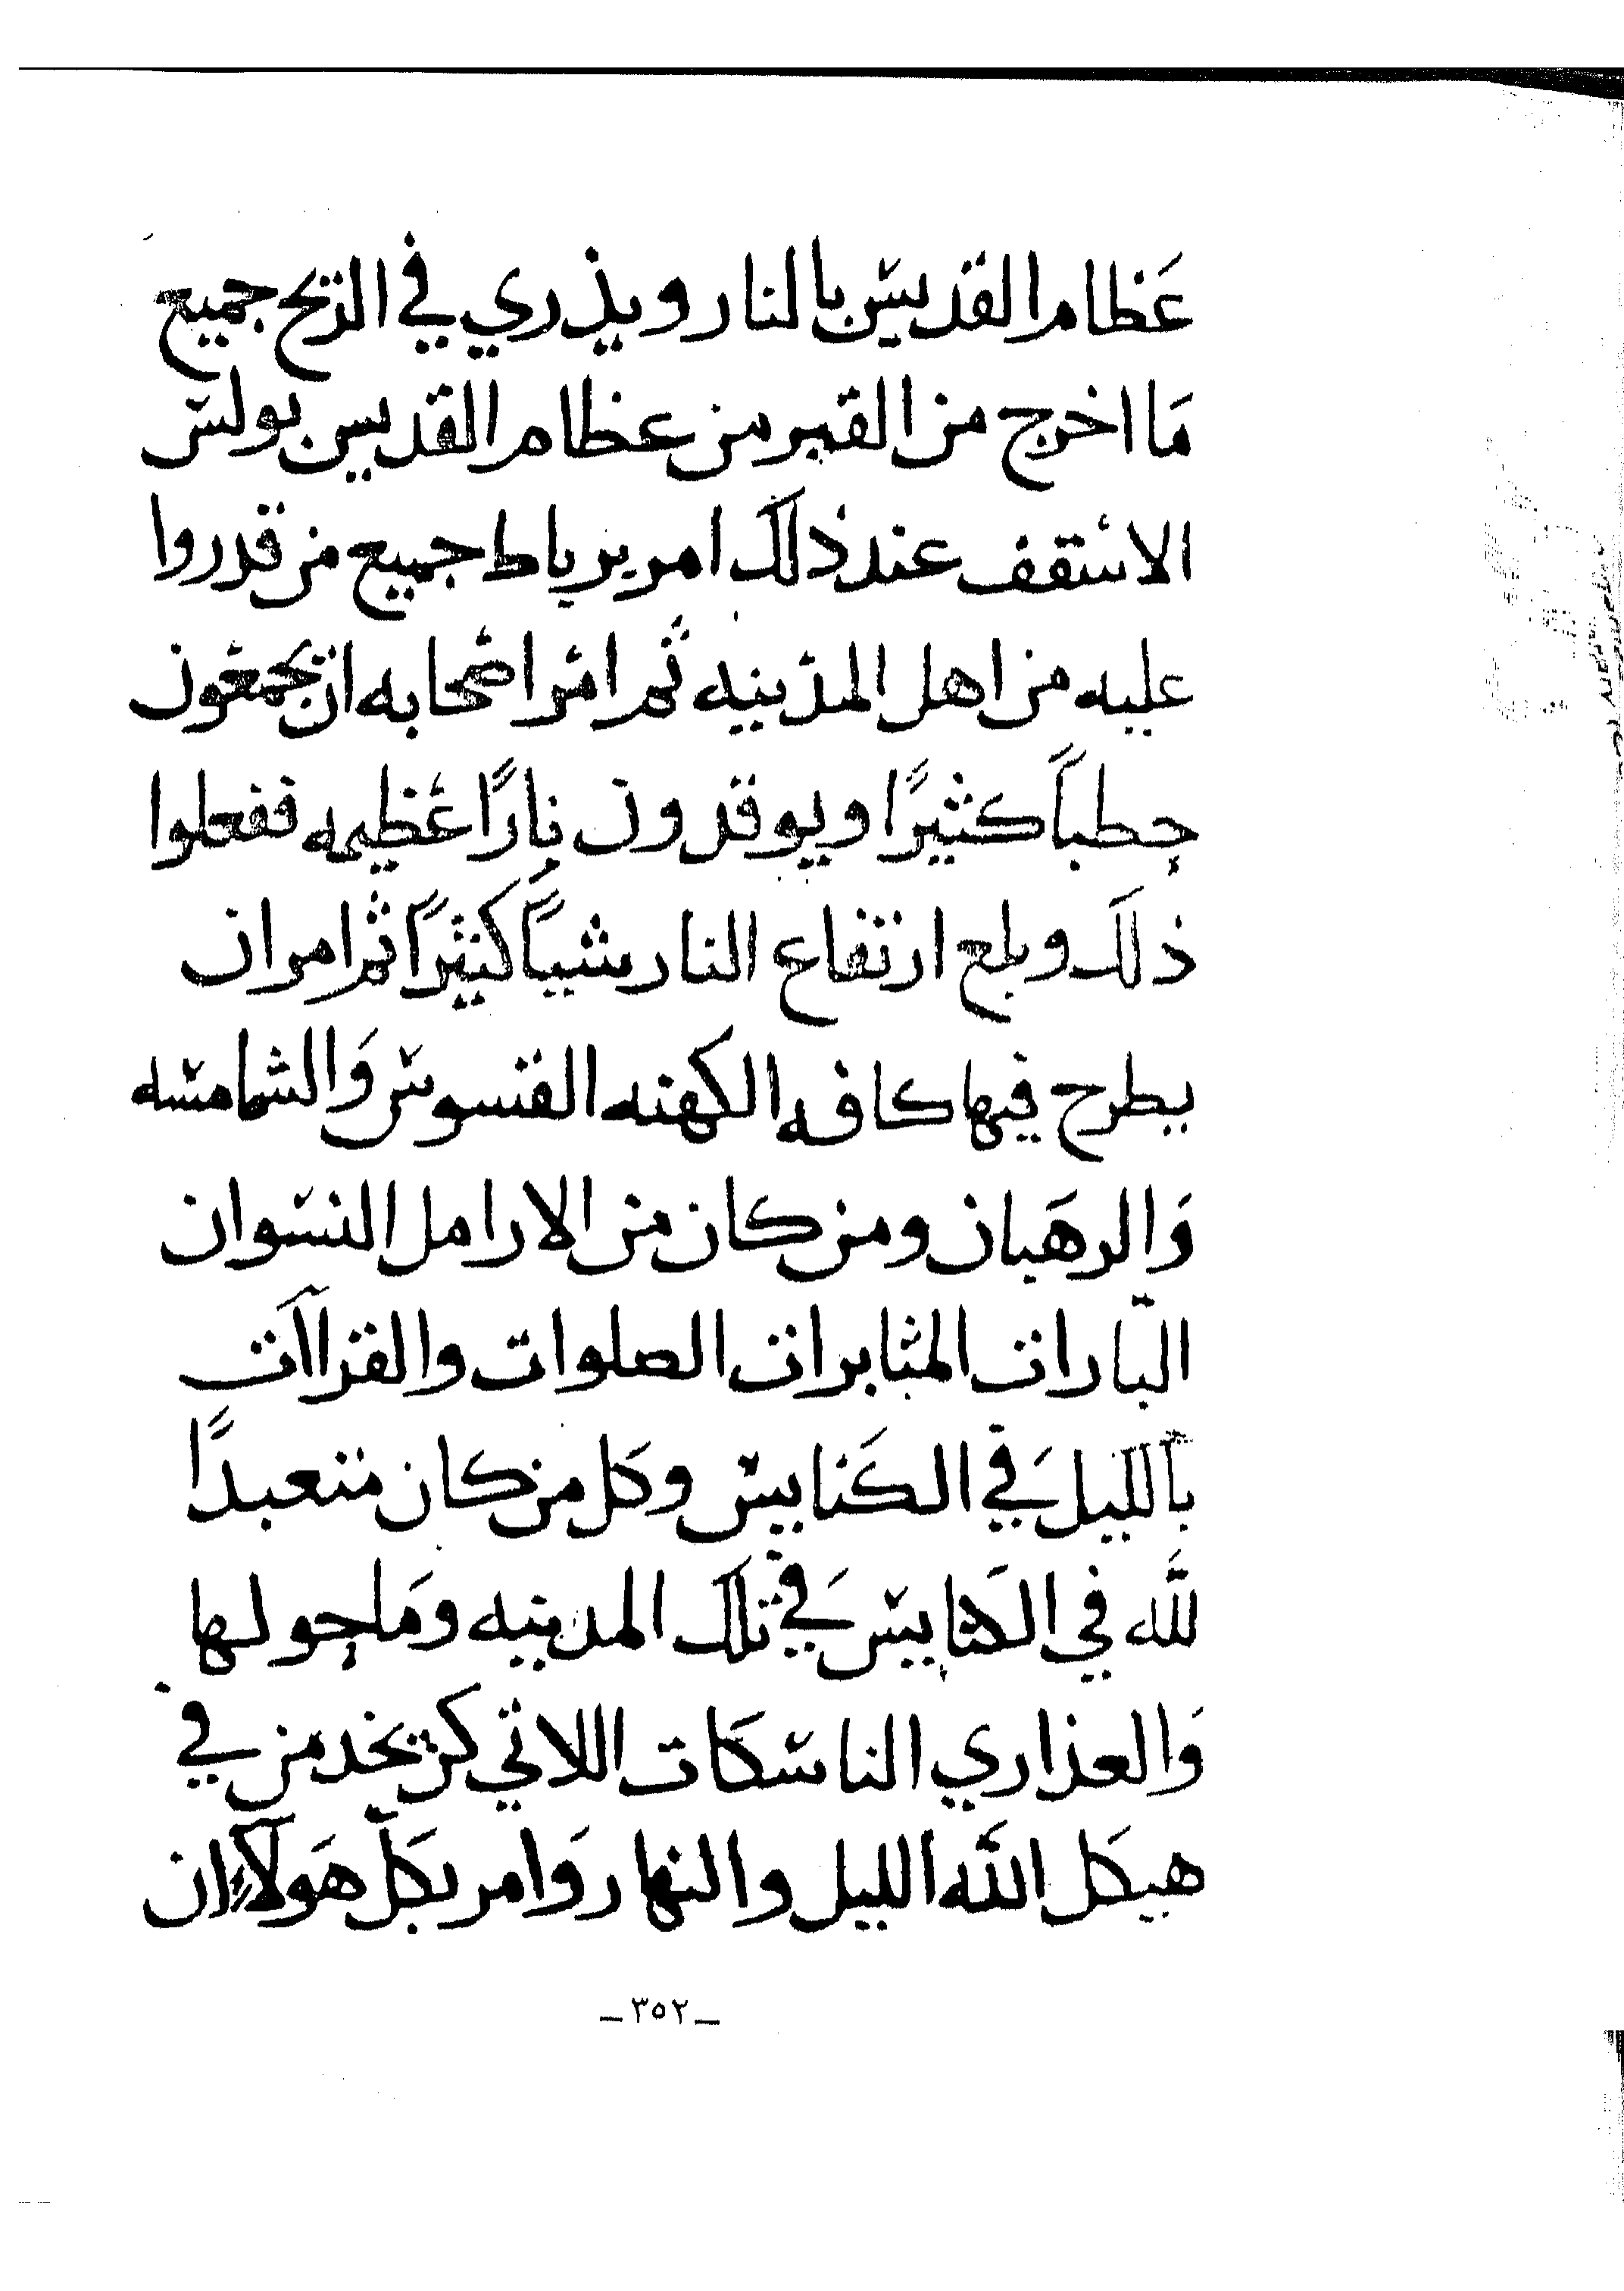 عَظام القديس بالنار ويذري في الريح جميع
مَا اخرج من القبر من عظام القديس بولس
الاسقف عند ذلك امر برباط جميع من قدروا
عليه من اهل المدينه ثم امر اصحابه ان يجمعون
حطباً كثيرًا ويوقدون نارًا عظيمه ففعلوا
ذلك وبلع ارتفاع النار شيياً كثيرًا ثم امر ان
يطرح فيها كافه الكهنه القسوس وَالشمامسه
وَالرهَبان ومن كان من الارامل النسوان
البّارات المثابرات الصلوات والقراآت
بالليل في الكَنايس وكل من كان متعبدًا
لله في الكنايس في تلك المدينه ومَا حولها
وَالعذاري الناسكات اللاتي كن يخدمن في
هيكل الله الليل والنهار وَامر بكل هَولاء ان
_٣٥٢_